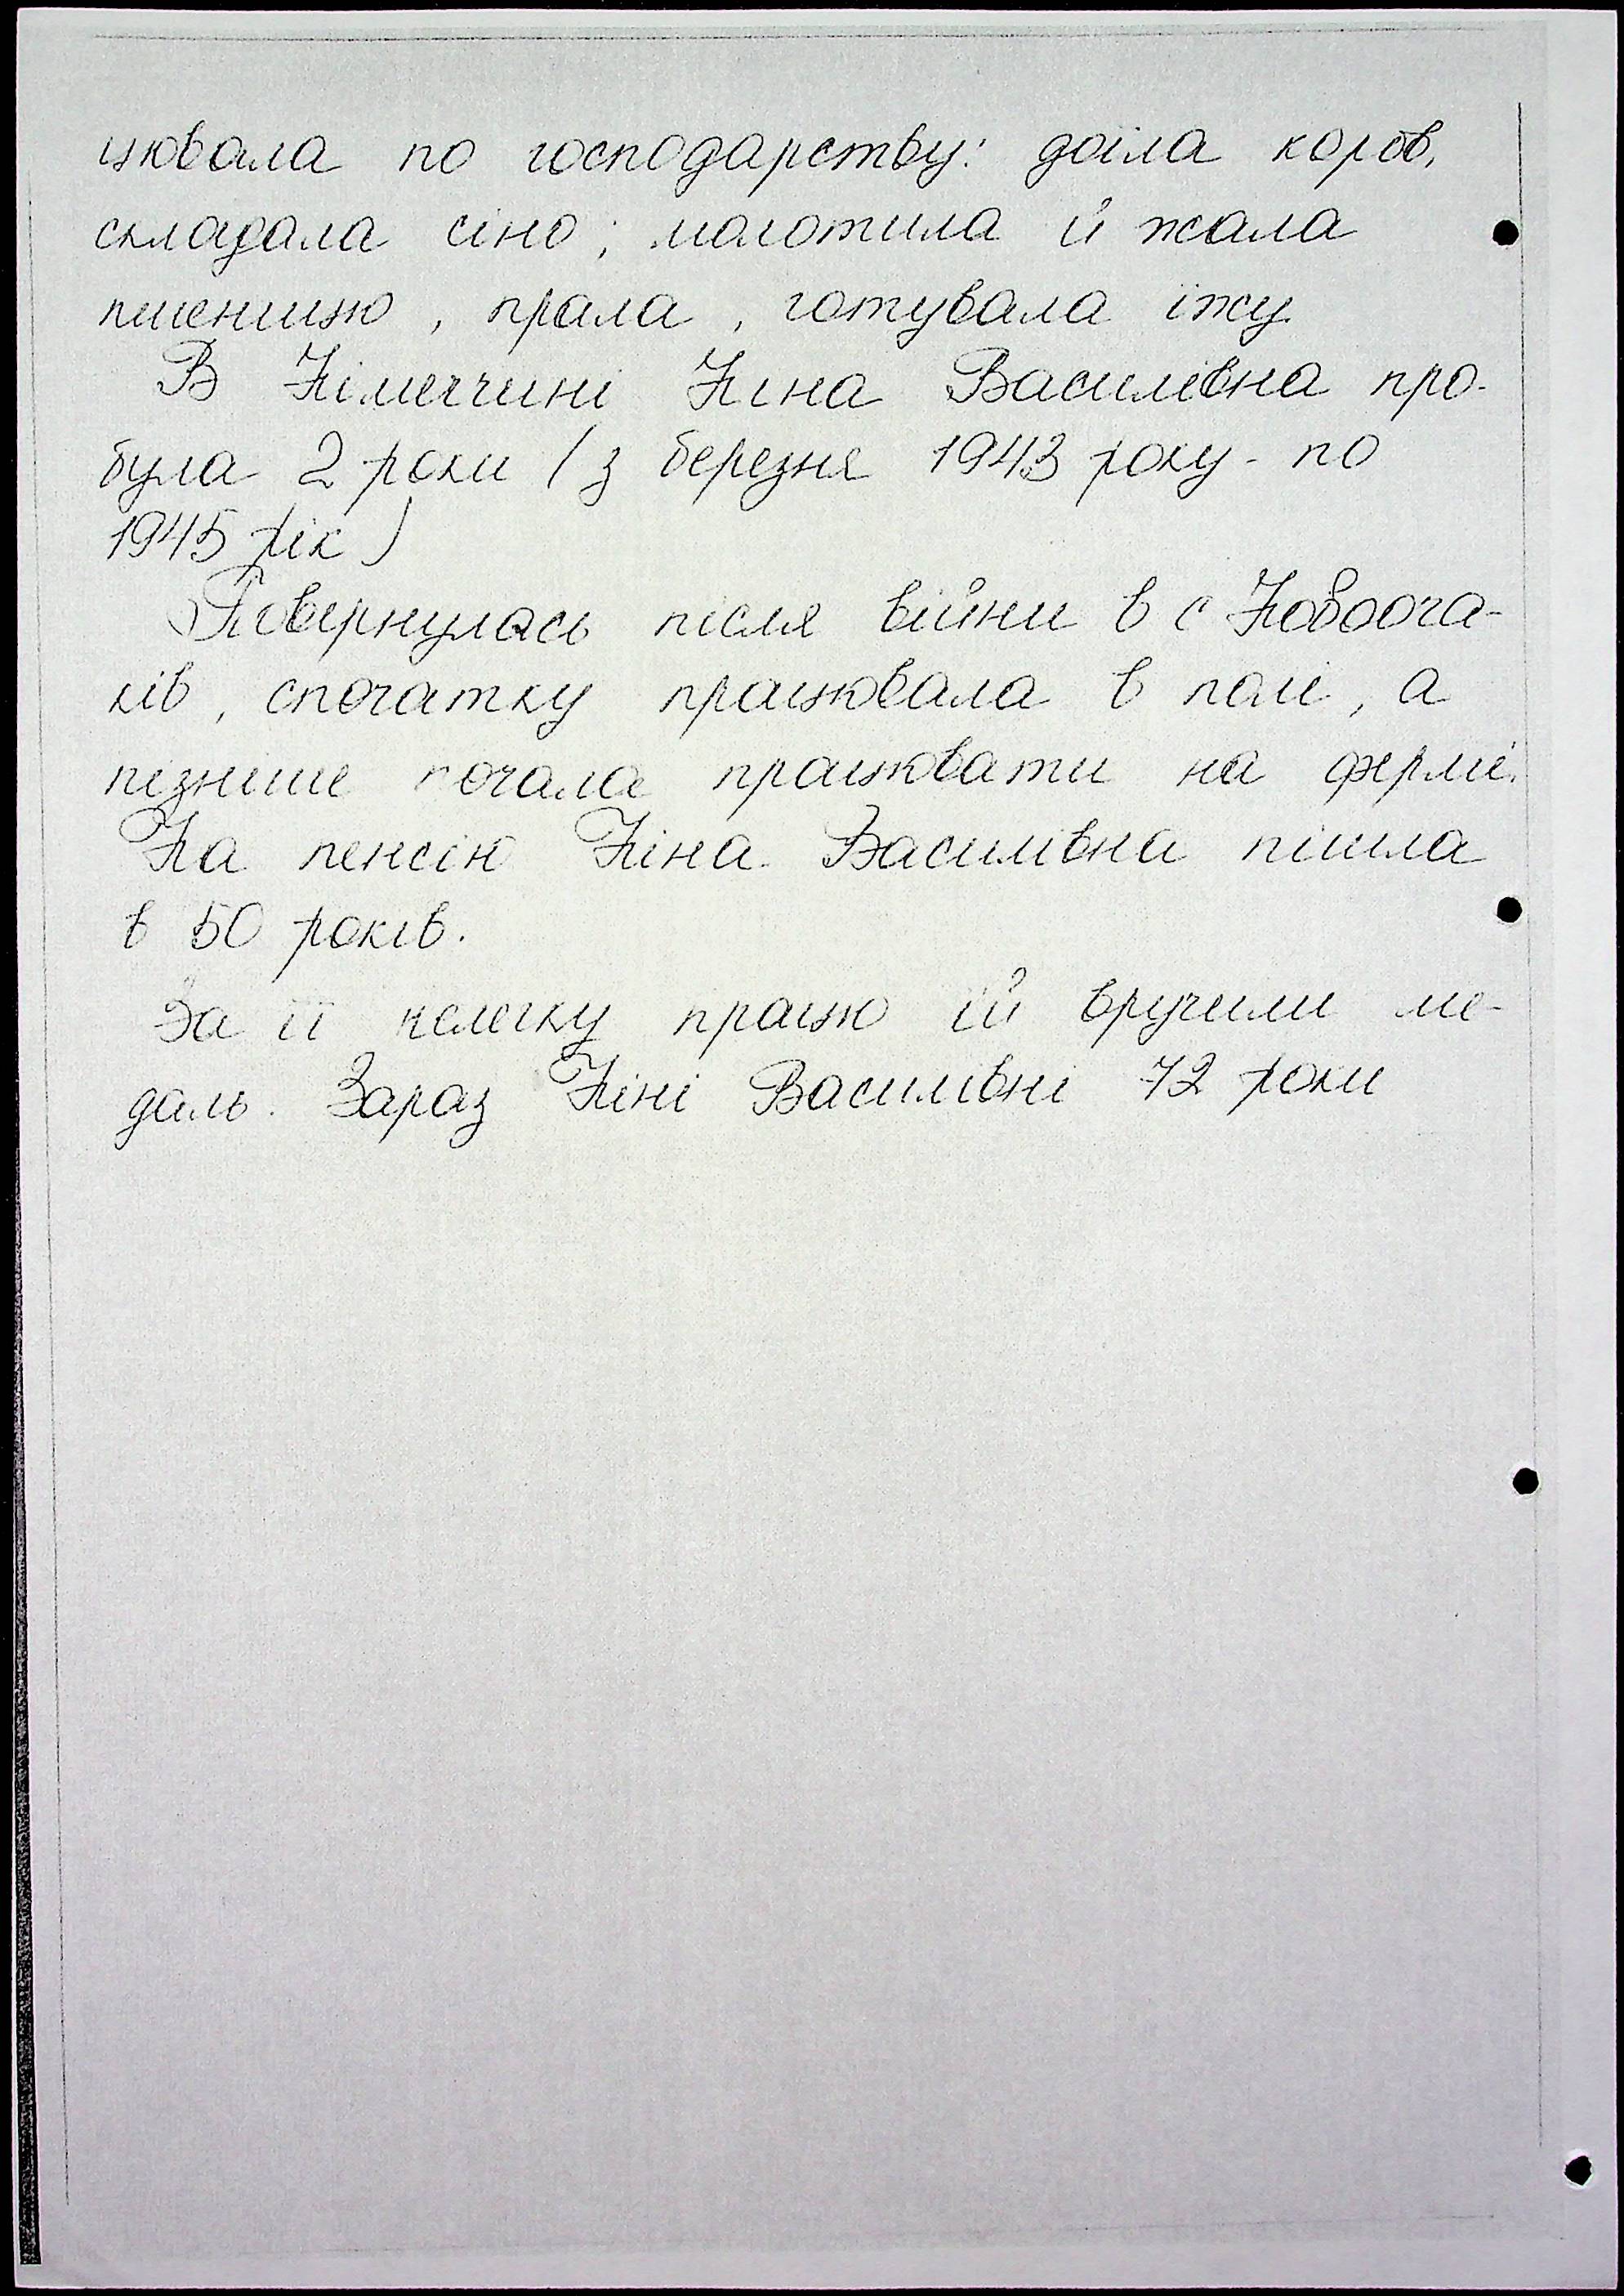 цювала по господарству: доїла корів,
складала сіно; молотила й жала
пшеницю, прала, готувала їжу.
В Німеччині Ніна Василівна про-
була 2 роки (з березня 1943 року - по
1945 рік)
Повернулась після війни в с Новооча-
ків, спочатку працювала в полі, а
пізніше почала працювати на фермі.
На пенсію Ніна Василівна пішла
в 50 років.
За її нелегку працю їй вручили ме-
даль. Зараз Ніні Василівні 72 роки